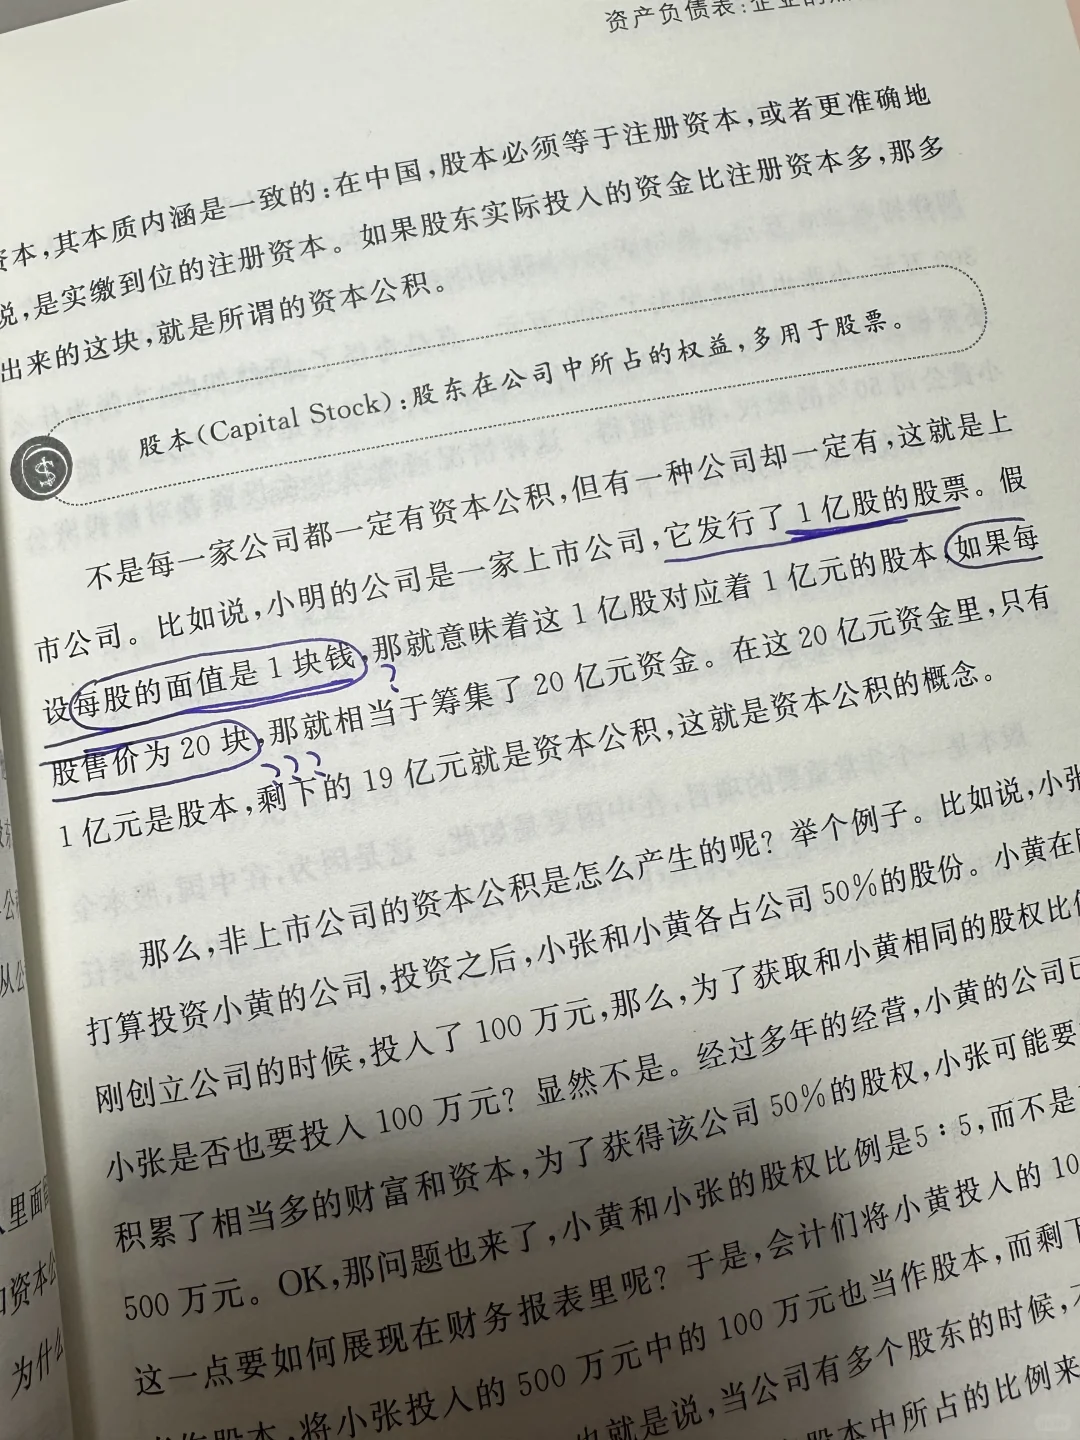 资产负债表：企业的
资本，其本质内涵是一致的：在中国，股本必须等于注册资本，或者更准确地
说，是实缴到位的注册资本。如果股东实际投入的资金比注册资本多，那多
出来的这块，就是所谓的资本公积。
股本（Capital Stock）：股东在公司中所占的权益，多用于股票。
不是每一家公司都一定有资本公积，但有一种公司却一定有，这就是上
市公司。比如说，小明的公司是一家上市公司，它发行了1亿股的股票。假
设每股的面值是1块钱，那就意味着这1亿股对应着1亿元的股本，如果每
?
股售价为20块，那就相当于筹集了20亿元资金。在这20亿元资金里，只有
1亿元是股本，剩下的19亿元就是资本公积，这就是资本公积的概念。
那么，非上市公司的资本公积是怎么产生的呢？举个例子。比如说，小张
打算投资小黄的公司，投资之后，小张和小黄各占公司50%的股份。小黄在
刚创立公司的时候，投入了100万元，那么，为了获取和小黄相同的股权比
小张是否也要投入100万元？显然不是。经过多年的经营，小黄的公司已
积累了相当多的财富和资本，为了获得该公司50%的股权，小张可能要
500万元。OK，那问题也来了，小黄和小张的股权比例是5：5，而不是
这一点要如何展现在财务报表里呢？于是，会计们将小黄投入的10
作股本，将小张投入的500万元中的100万元也当作股本，而剩下
也就是说，当公司有多个股东的时候，
股本中所占的比例来
从公
里面
资本公
为什么